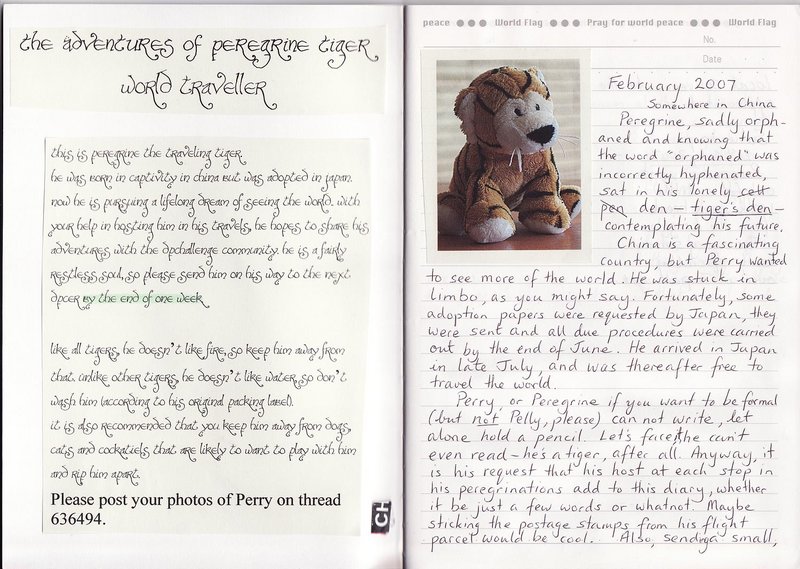 the adventures of peregrine tiger
world traveller
this is peregrine the traveling tiger.
he was born in captivity in china but was adopted in japan.
now he is pursuing a lifelong dream of seeing the world. with
your help in hosting him in his travels, he hopes to share his
adventures with the dpchallenge community. he is a fairly
restless soul, so please send him on his way to the next
dpcer by the end of one week.
like all tigers, he doesn't like fire, so keep him away from
that. unlike other tigers, he doesn't like water, so don't
wash him (according to his original packing label).
it is also recommended that you keep him away from dogs,
cats and cockatiels that are likely to want to play with him
and rip him apart.
Please post your photos of Perry on thread
636494.
CH
peace ●●● World Flag ●●● Pray for world peace ●●● World Flag
No.
Date
February 2007
Somewhere in China
Peregrine, sadly orph-
aned and knowing that
the word "orphaned" was
incorrectly hyphenated,
sat in his lonely cell
pen den – tiger's den –
contemplating his future.
China is a fascinating
country, but Perry wanted
to see more of the world. He was stuck in
limbo, as you might say. Fortunately, some
adoption papers were requested by Japan, they
were sent and all due procedures were carried
out by the end of June. He arrived in Japan
in late July, and was thereafter free to
travel the world.
Perry, or Peregrine if you want to be formal
(but not Pelly, please) can not write, let
alone hold a pencil. Let's face it, he can't
even read – he's a tiger, after all. Anyway, it
is his request that his host at each stop in
his peregrinations add to this diary, whether
it be just a few words or whatnot. Maybe
sticking the postage stamps from his flight
parcel would be cool. Also, sending a small,